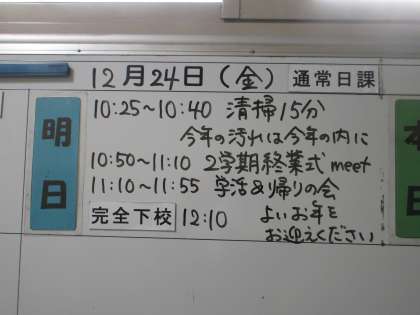 12月24日(金) 通常日課
明日
10:25~10:40 清掃15分
今年の汚れは今年の内に
10:50~11:10 2学期終業式meet
11:10~11:55 学活&帰りの会
完全下校 12:10 よいお年を
お迎えください
本日